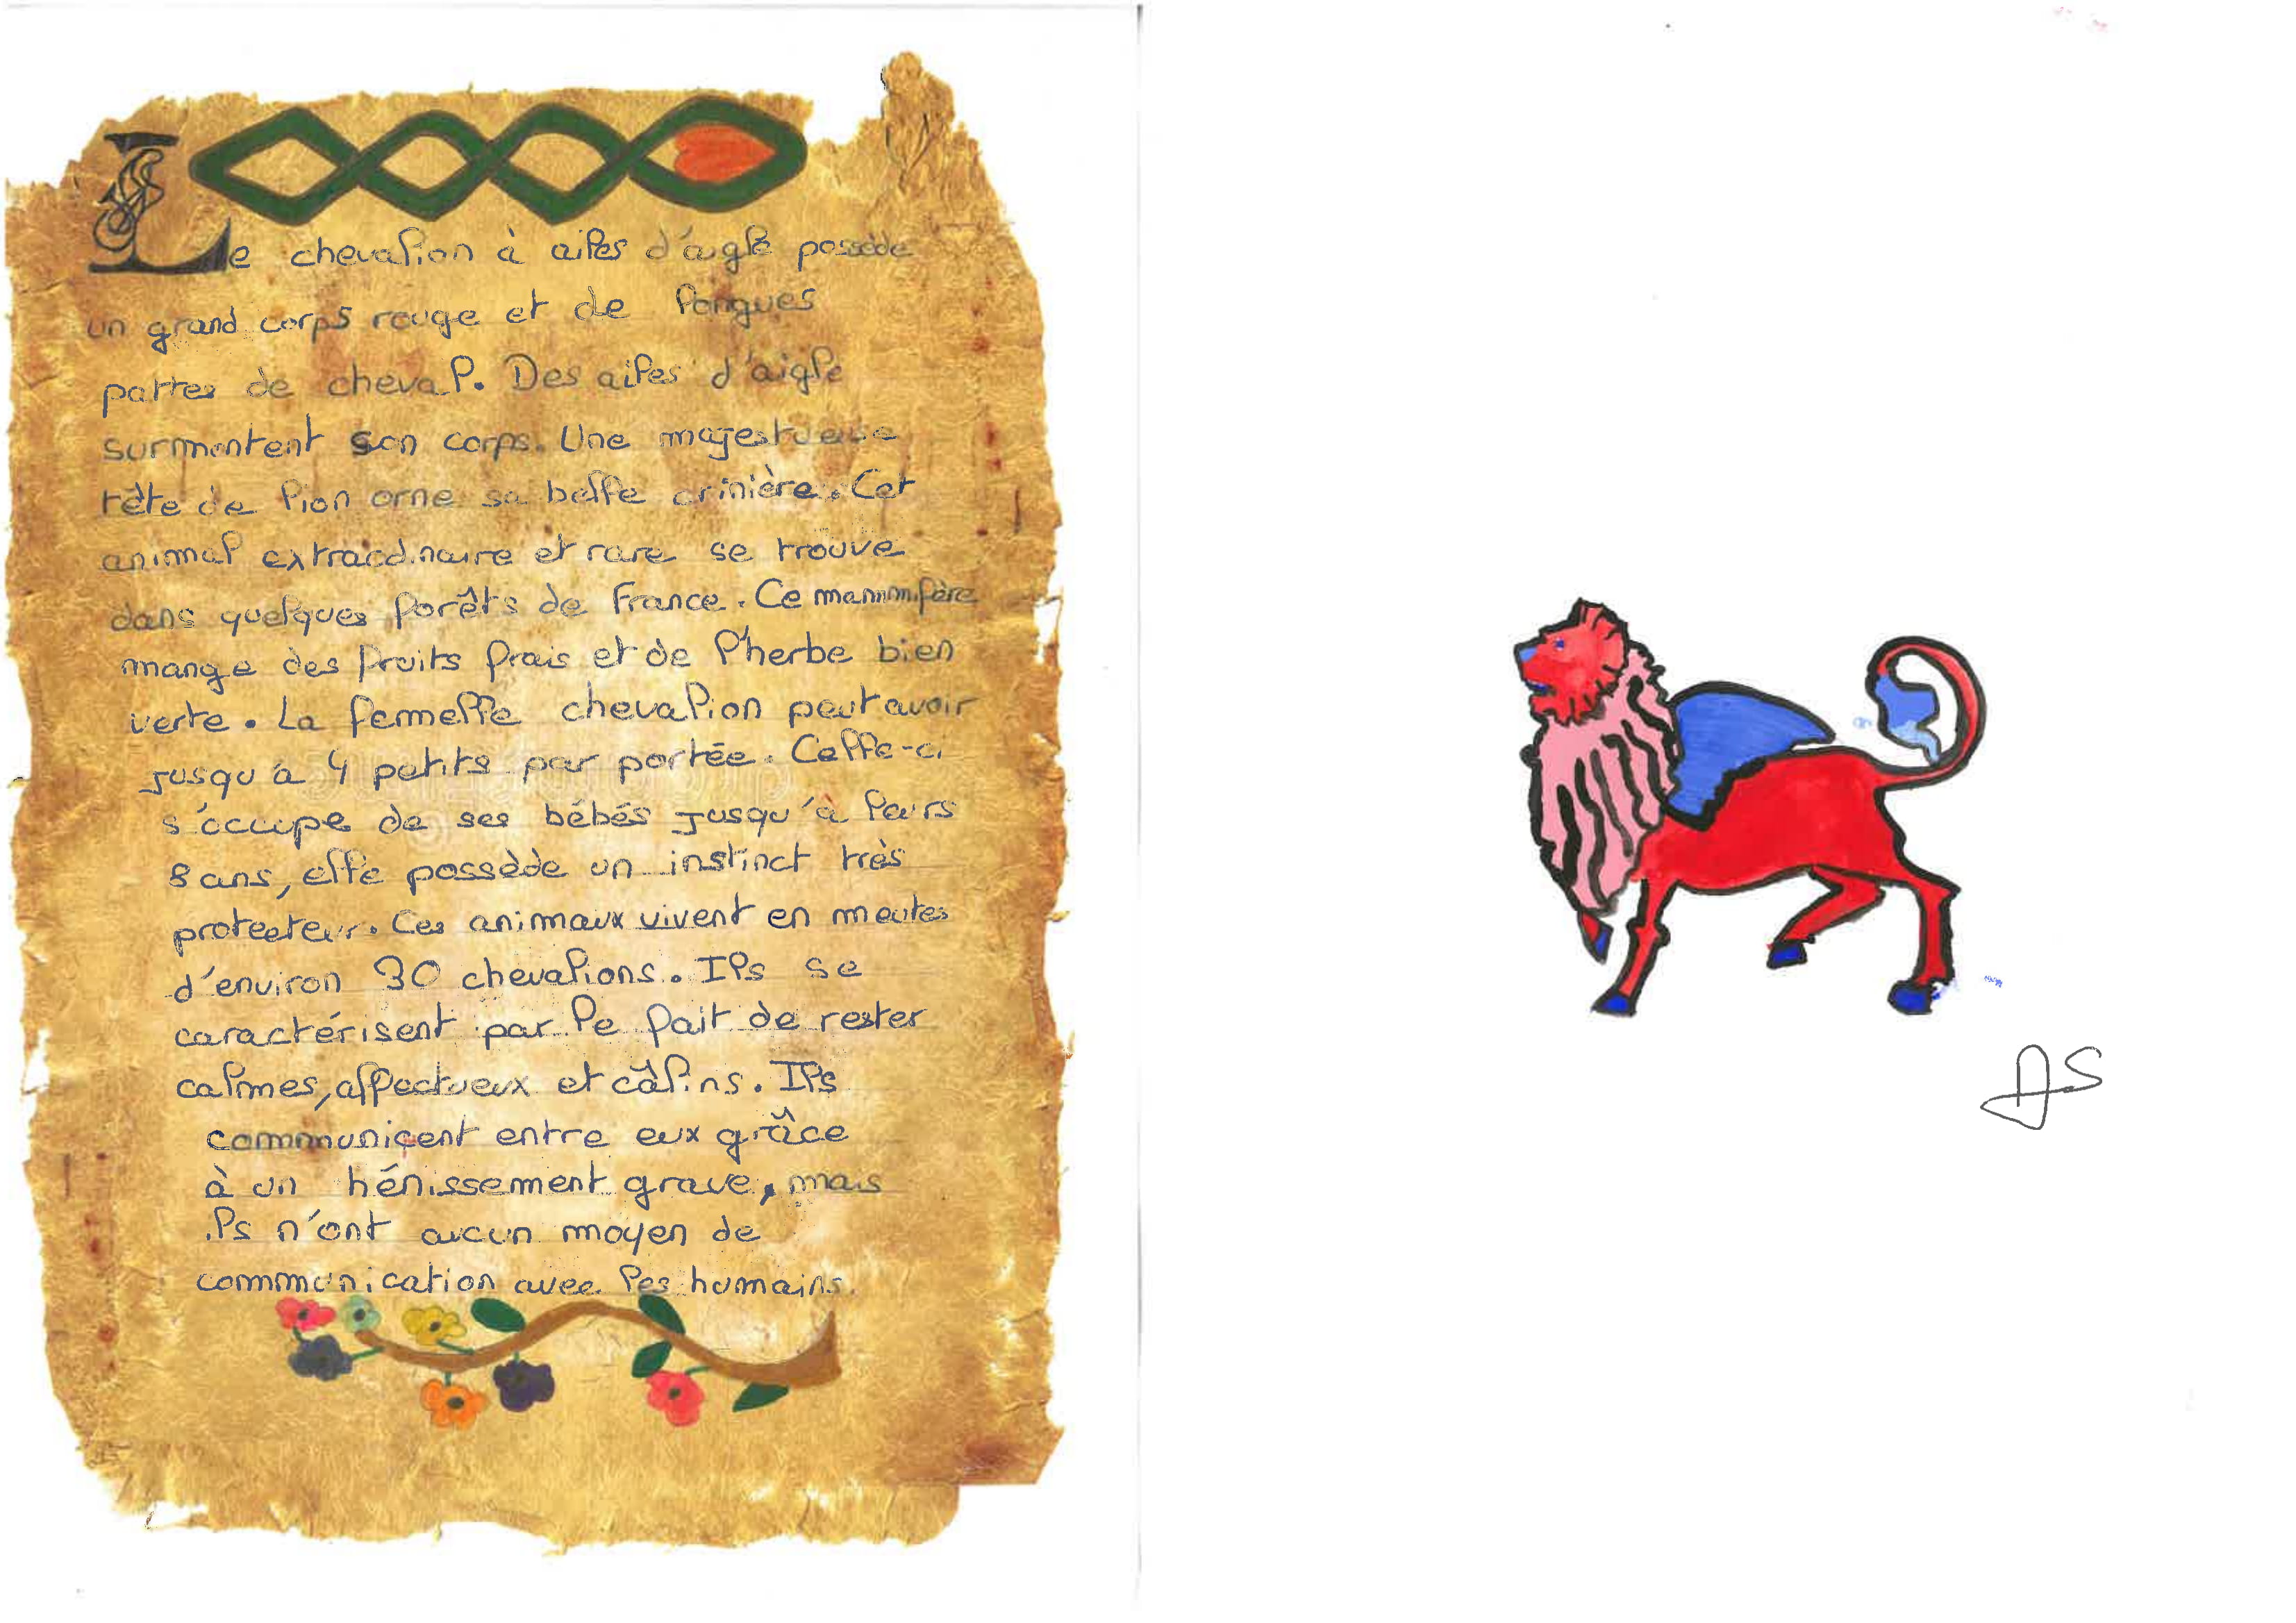 Le chevalion à ailes d'aigle possède
un grand corps rouge et de longues
pattes de cheval. Des ailes d'aigle
surmontent son corps. Une majestueuse
tête de lion orne sa belle crinière. Cet
animal extraordinaire et rare se trouve
dans quelques forêts de France. Ce mammifère
mange des fruits frais et de l'herbe bien
verte. La femelle chevalion peut avoir
jusqu'à 4 petits par portée. Celle-ci
s'occupe de ses bébés jusqu'à leurs
8 ans, elle possède un instinct très
protecteur. Ces animaux vivent en meutes
d'environ 30 chevalions. Ils se
caractérisent par le fait de rester
calmes, affectueux et câlins. Ils
communiquent entre eux grâce
à un hénissement grave, mais
ils n'ont aucun moyen de
communication avec les humains.
AS